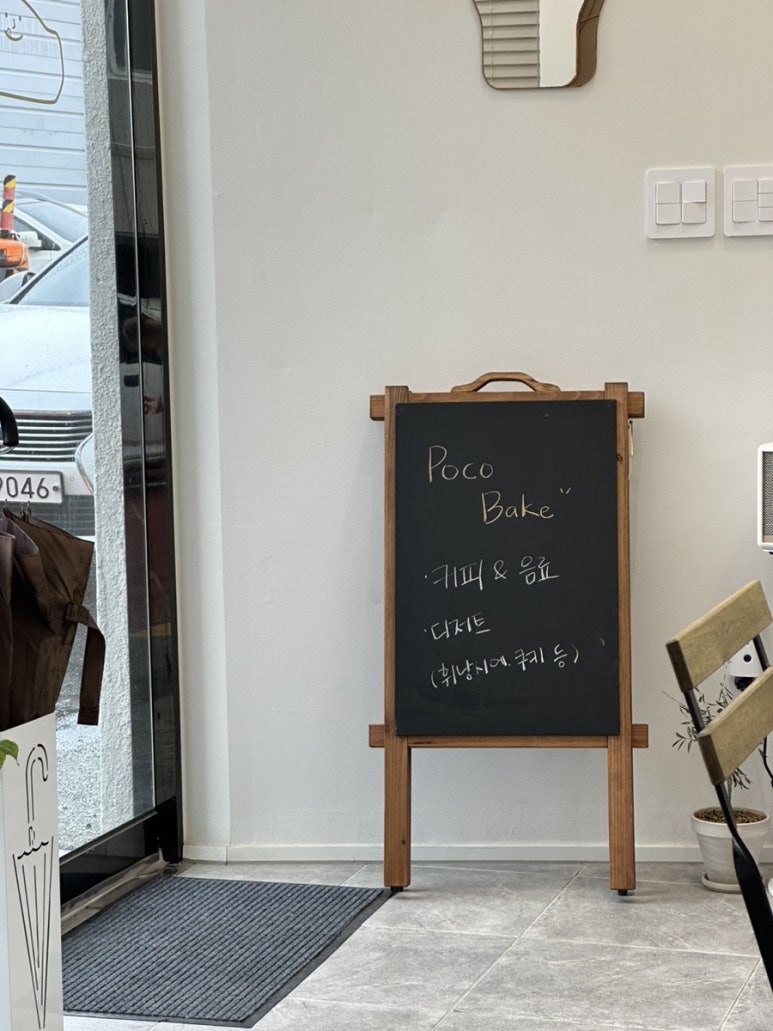 Poco
Bake"
· 커피 & 음료
· 디저트
(휘낭시에, 쿠키 등)
9046